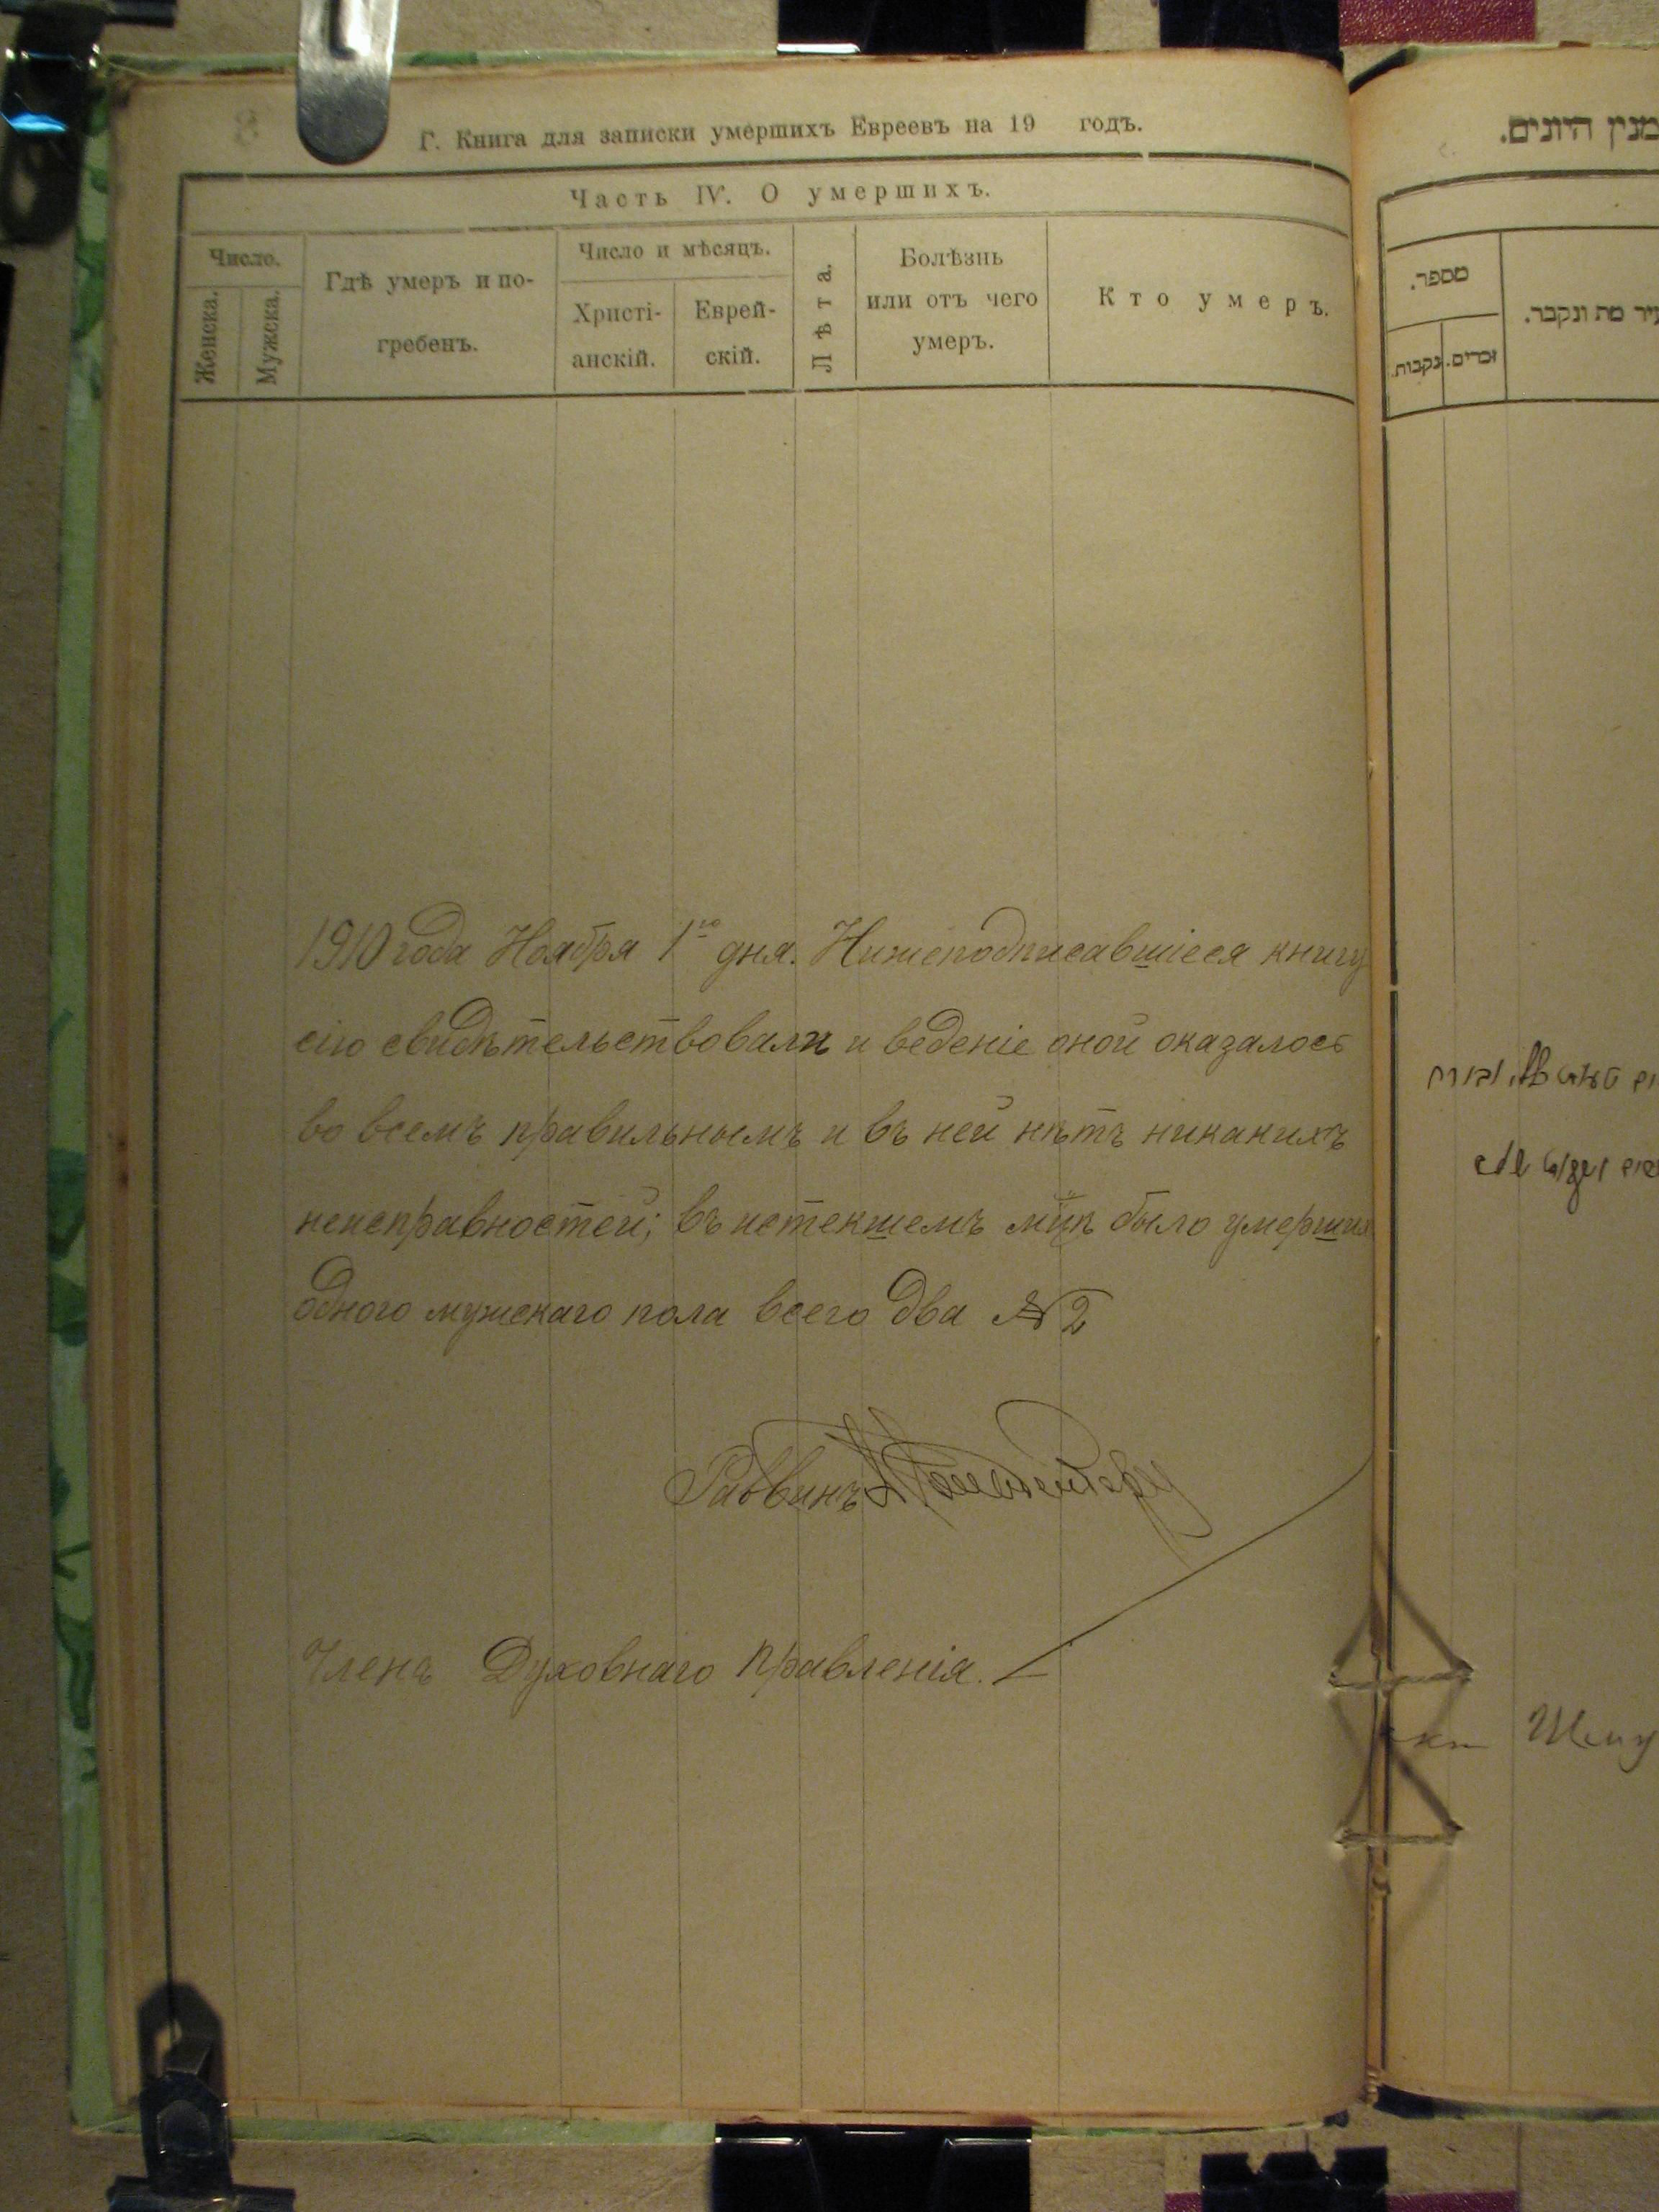 Г. Книга для записки умершихъ Евреевъ на 19 годъ.
Часть IV. О умершихъ.
Число.
Женска.
Мужска.
Гдѣ умеръ и по-
гребенъ.
Число и мѣсяцъ.
Христі-
анскій.
Еврей-
скій.
Лѣта.
Болѣзнь
или отъ чего
умеръ.
Кто умеръ.
1910 года Ноября 1го дня. Нижеподписавшіеся книгу
сію свидѣтельствовали и веденіе оной оказалось
во всемъ правильнымъ и въ ней нѣтъ никакихъ
неисправностей; въ истекшемъ м-цѣ было умерших
одного мужскаго пола всего два № 2
Раввинъ
Члена Духовнаго Правленія.
מנין היונים.
מספר.
נקבות.
זכרים.
עיר מת ונקבר.